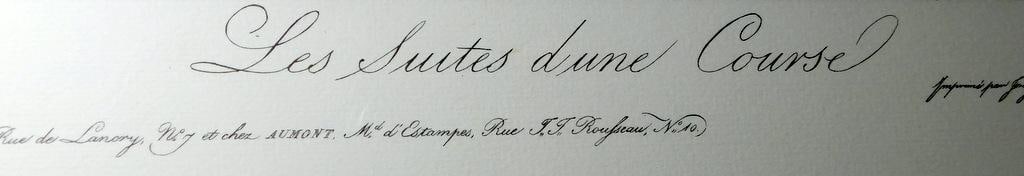 Les Suites d'une Course
Imprimé par
Rue de Lancry, N.º 7 et chez AUMONT, M.d d'Estampes, Rue J.J. Rousseau, N.º 10.)